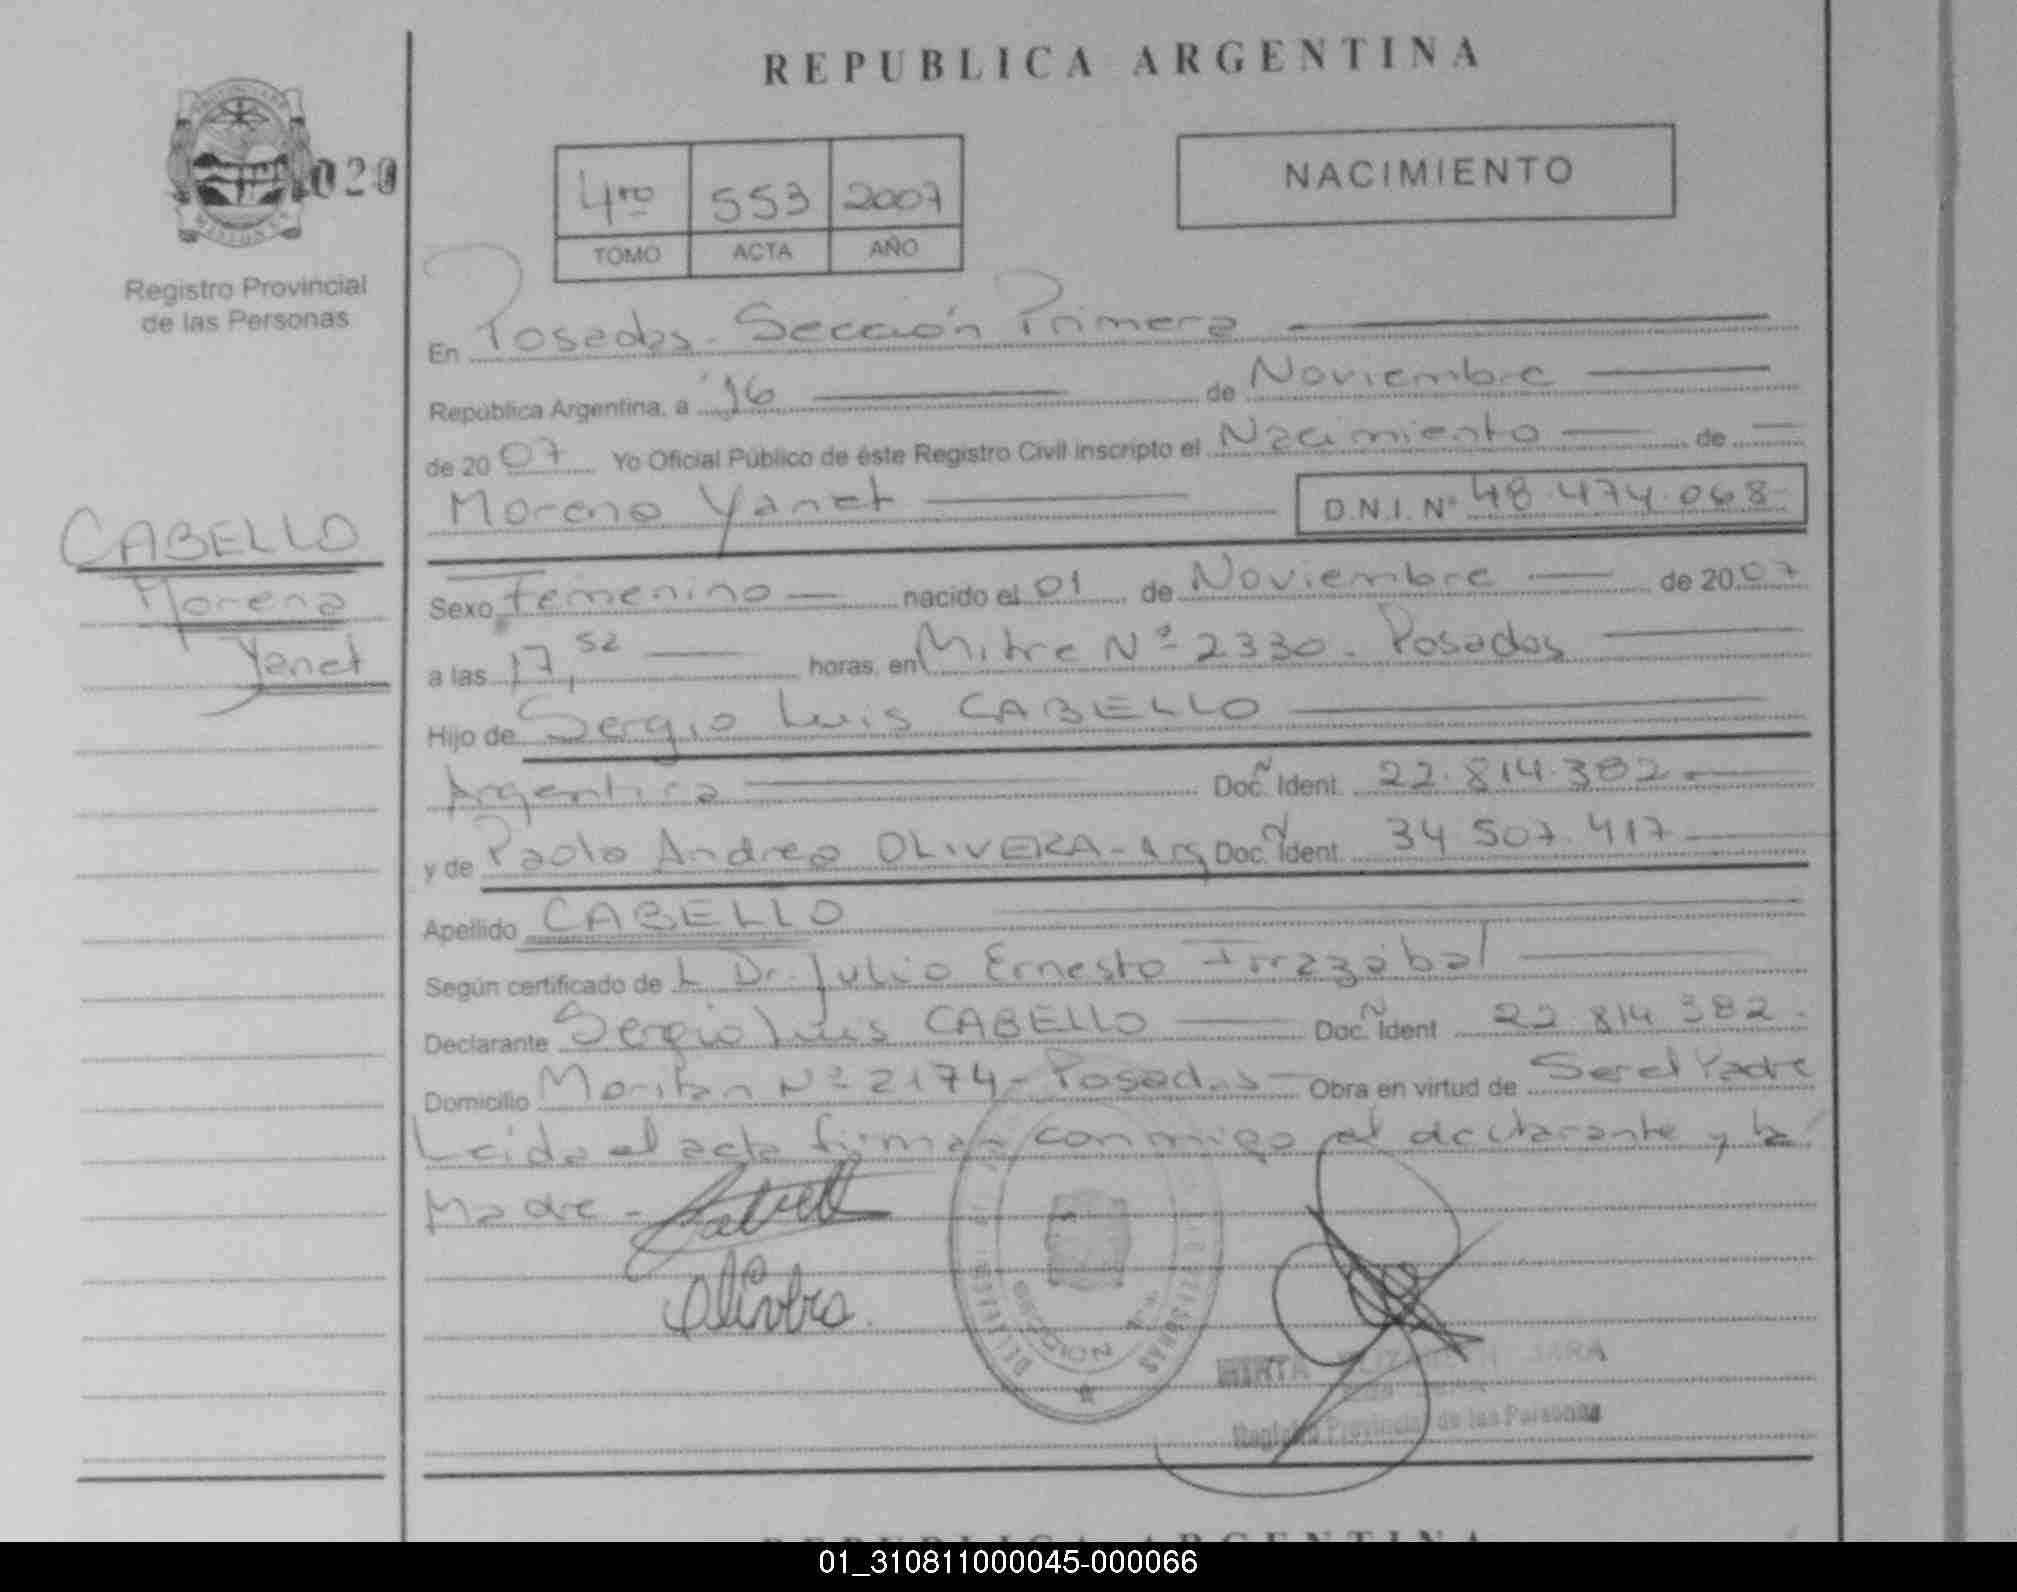 REPUBLICA ARGENTINA
PROVINCIA DE
MISIONES
020
NACIMIENTO
4to 553 2007
TOMO ACTA AÑO
Registro Provincial
de las Personas
En Posadas - Sección Primera
República Argentina, a 16 de Noviembre
de 2007 Yo Oficial Público de éste Registro Civil inscripto el Nacimiento de
Morena Yanet D.N.I. Nº 48.474.068
CABELLO
Morena
Yanet
Sexo Femenino nacido el 01 de Noviembre de 2007
a las 17,52 horas, en Mitre Nº 2330 - Posadas
Hijo de Sergio Luis CABELLO
Argentina Doc. Ident. 22.814.382
y de Paola Andrea OLIVERA - Arg Doc. Ident. 34 507.417
Apellido CABELLO
Según certificado de L Dr. Julio Ernesto Irrazabal
Declarante Sergio Luis CABELLO Doc. Ident 22 814 382.
Domicilio Nº 2174 - Posadas - Obra en virtud de Ser el Padre
Leida el acta firman conmigo el declarante y la
Madre -
Olivera.
SECCION 1ra
PERSONAS
MIRTA ELIZABETH JARA
Registro Provincial de las Personas
REPUBLICA ARGENTINA
01_310811000045-000066